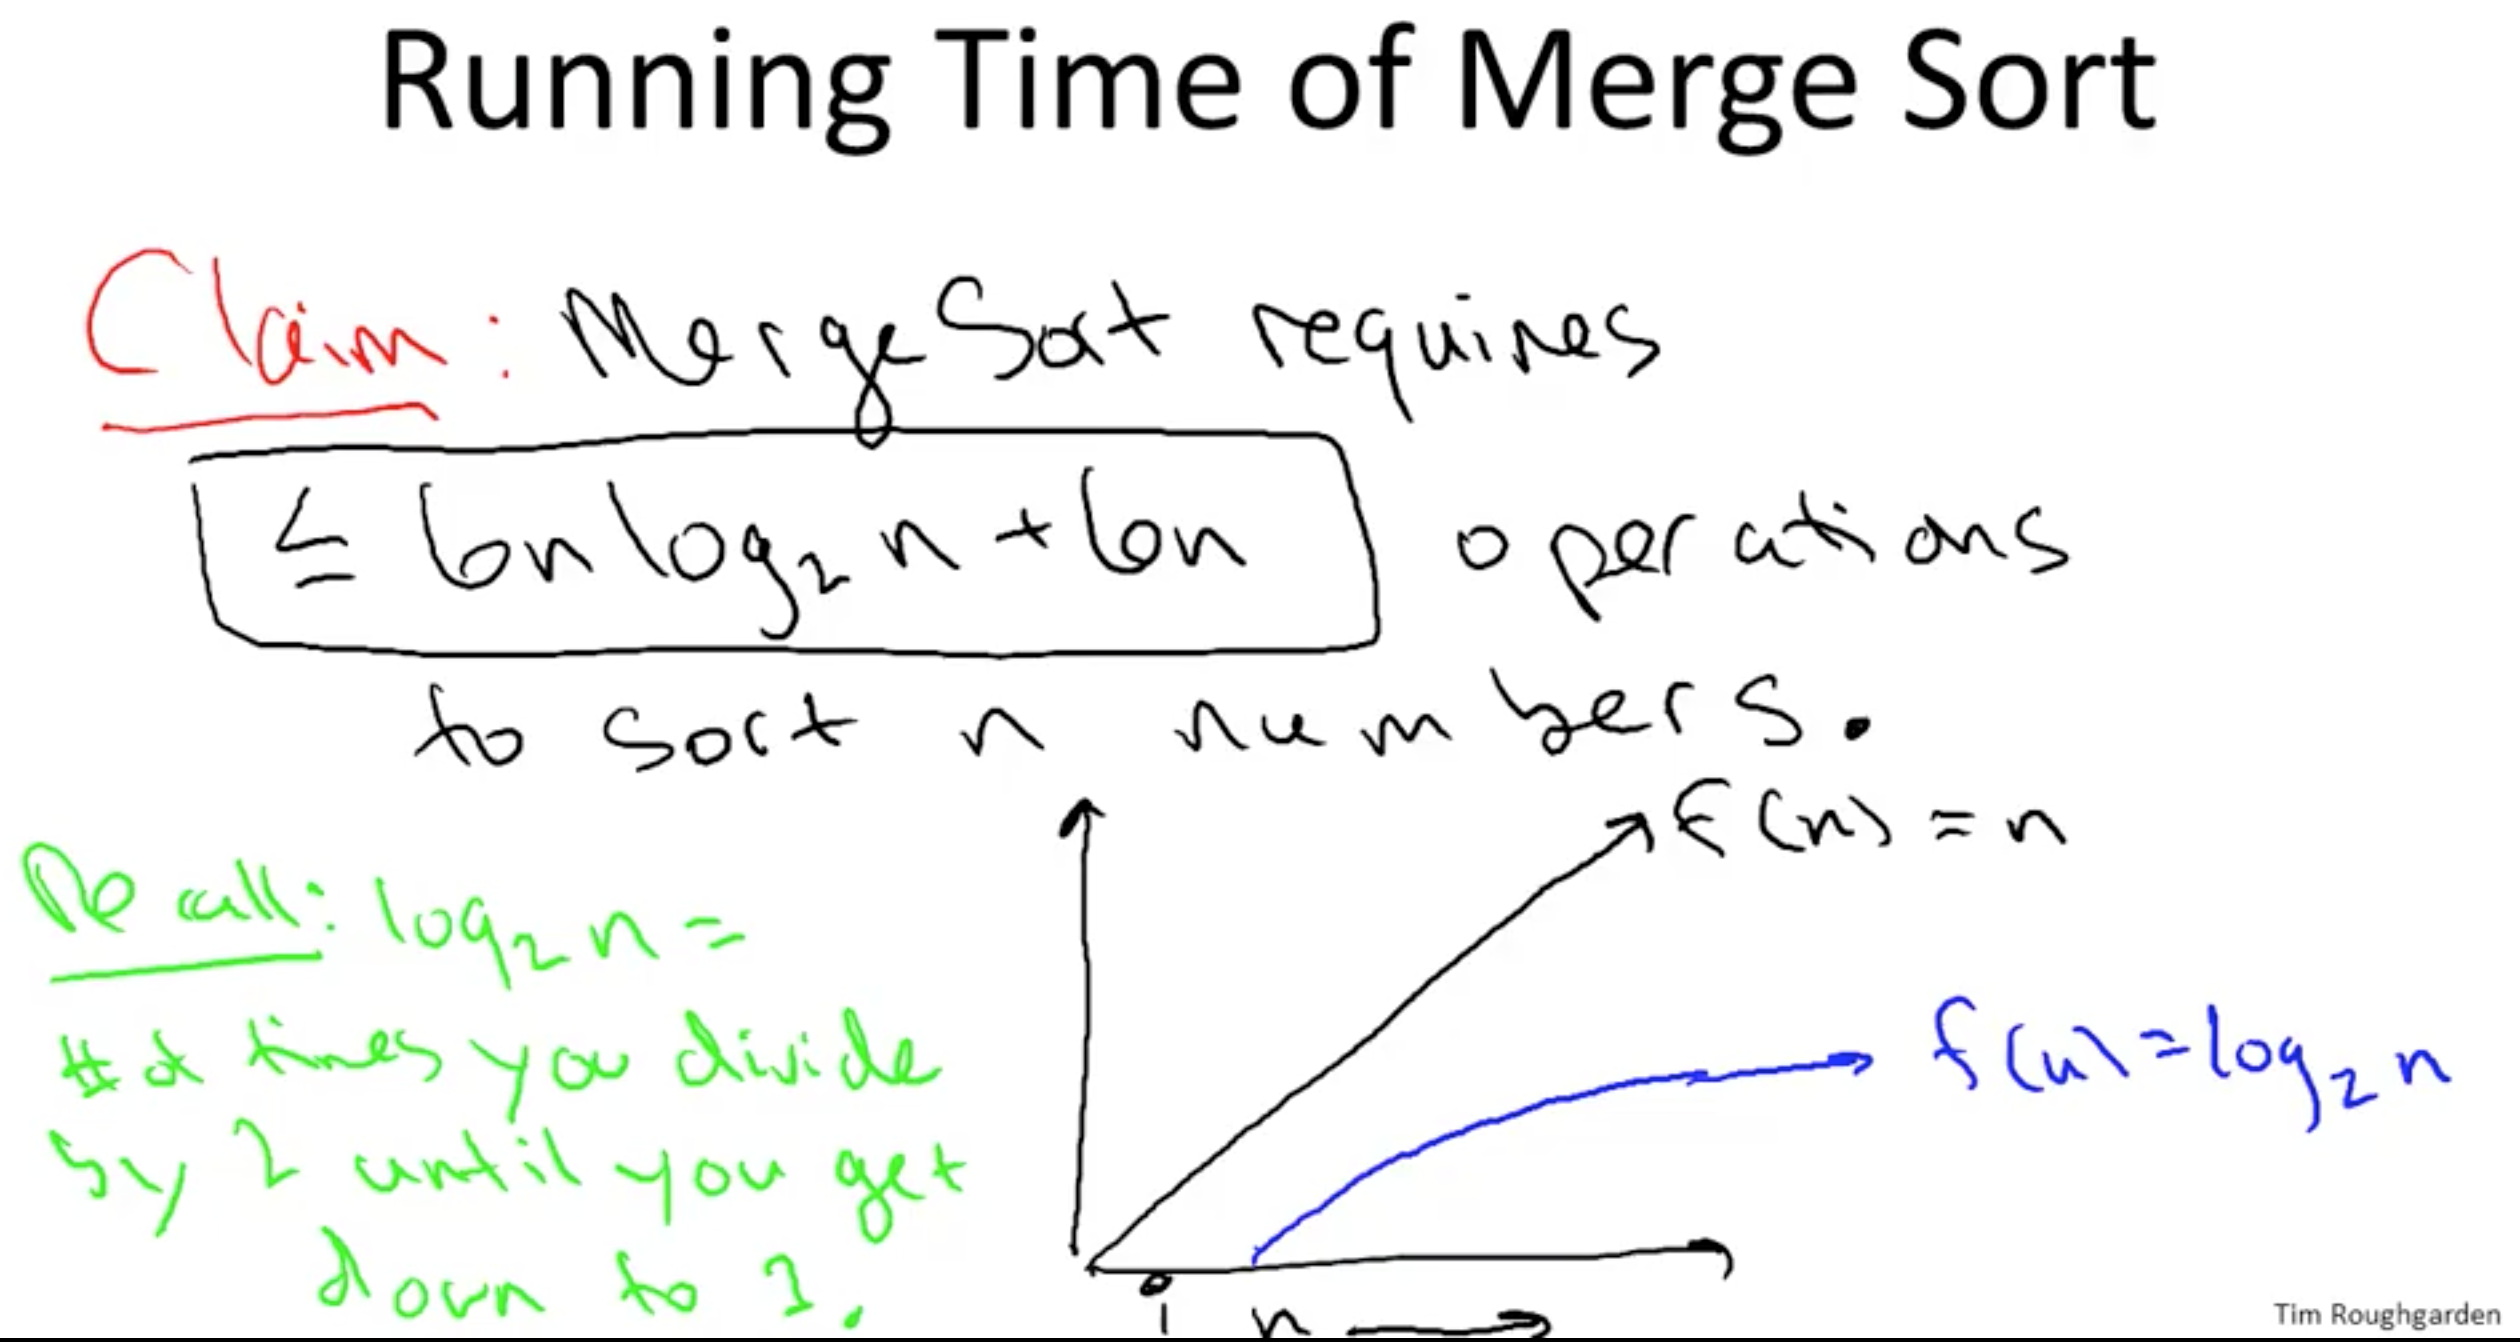 Running Time of Merge Sort
Claim: MergeSort requires
≤ 6n log₂ n + 6n operations
to sort n numbers.
f(n) = n
Recall: log₂ n =
# of times you divide
by 2 until you get
down to 1.
f(n) = log₂ n
1 n
Tim Roughgarden